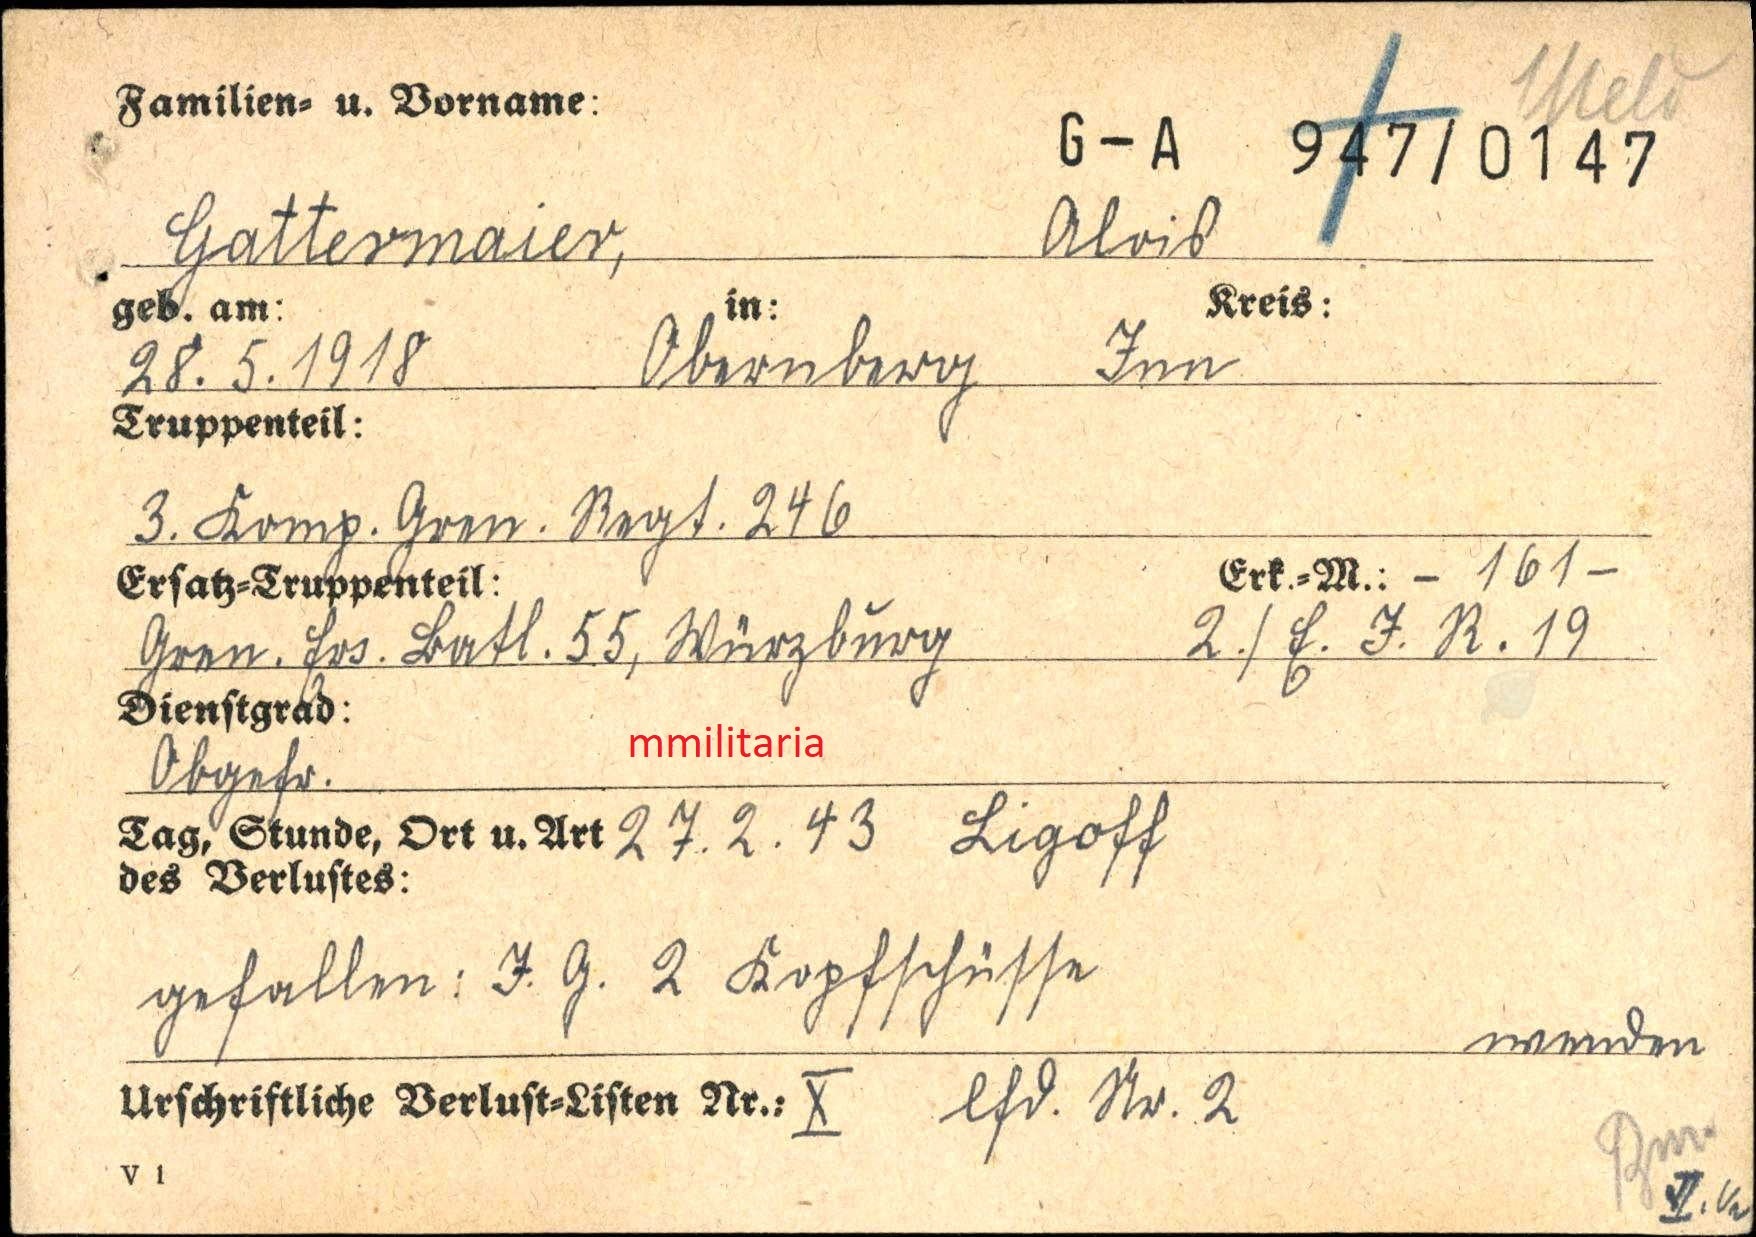 Familien- u. Vorname:
G-A 947/0147
Gattermaier, Alois
geb. am: in: Kreis:
28.5.1918 Obernberg Inn
Truppenteil:
3. Komp. Gren. Regt. 246
Ersatz-Truppenteil: Erk.-M.: - 161 -
Gren. Ers. Batl. 55, Würzburg 2./ E. J. R. 19
Dienstgrad:
Obgefr.
mmilitaria
Tag, Stunde, Ort u. Art 27.2.43 Ligoff
des Verlustes:
gefallen: J. G. 2 Kopfschüsse
wenden
Urschriftliche Verlust-Listen Nr.: X lfd. Nr. 2
V 1